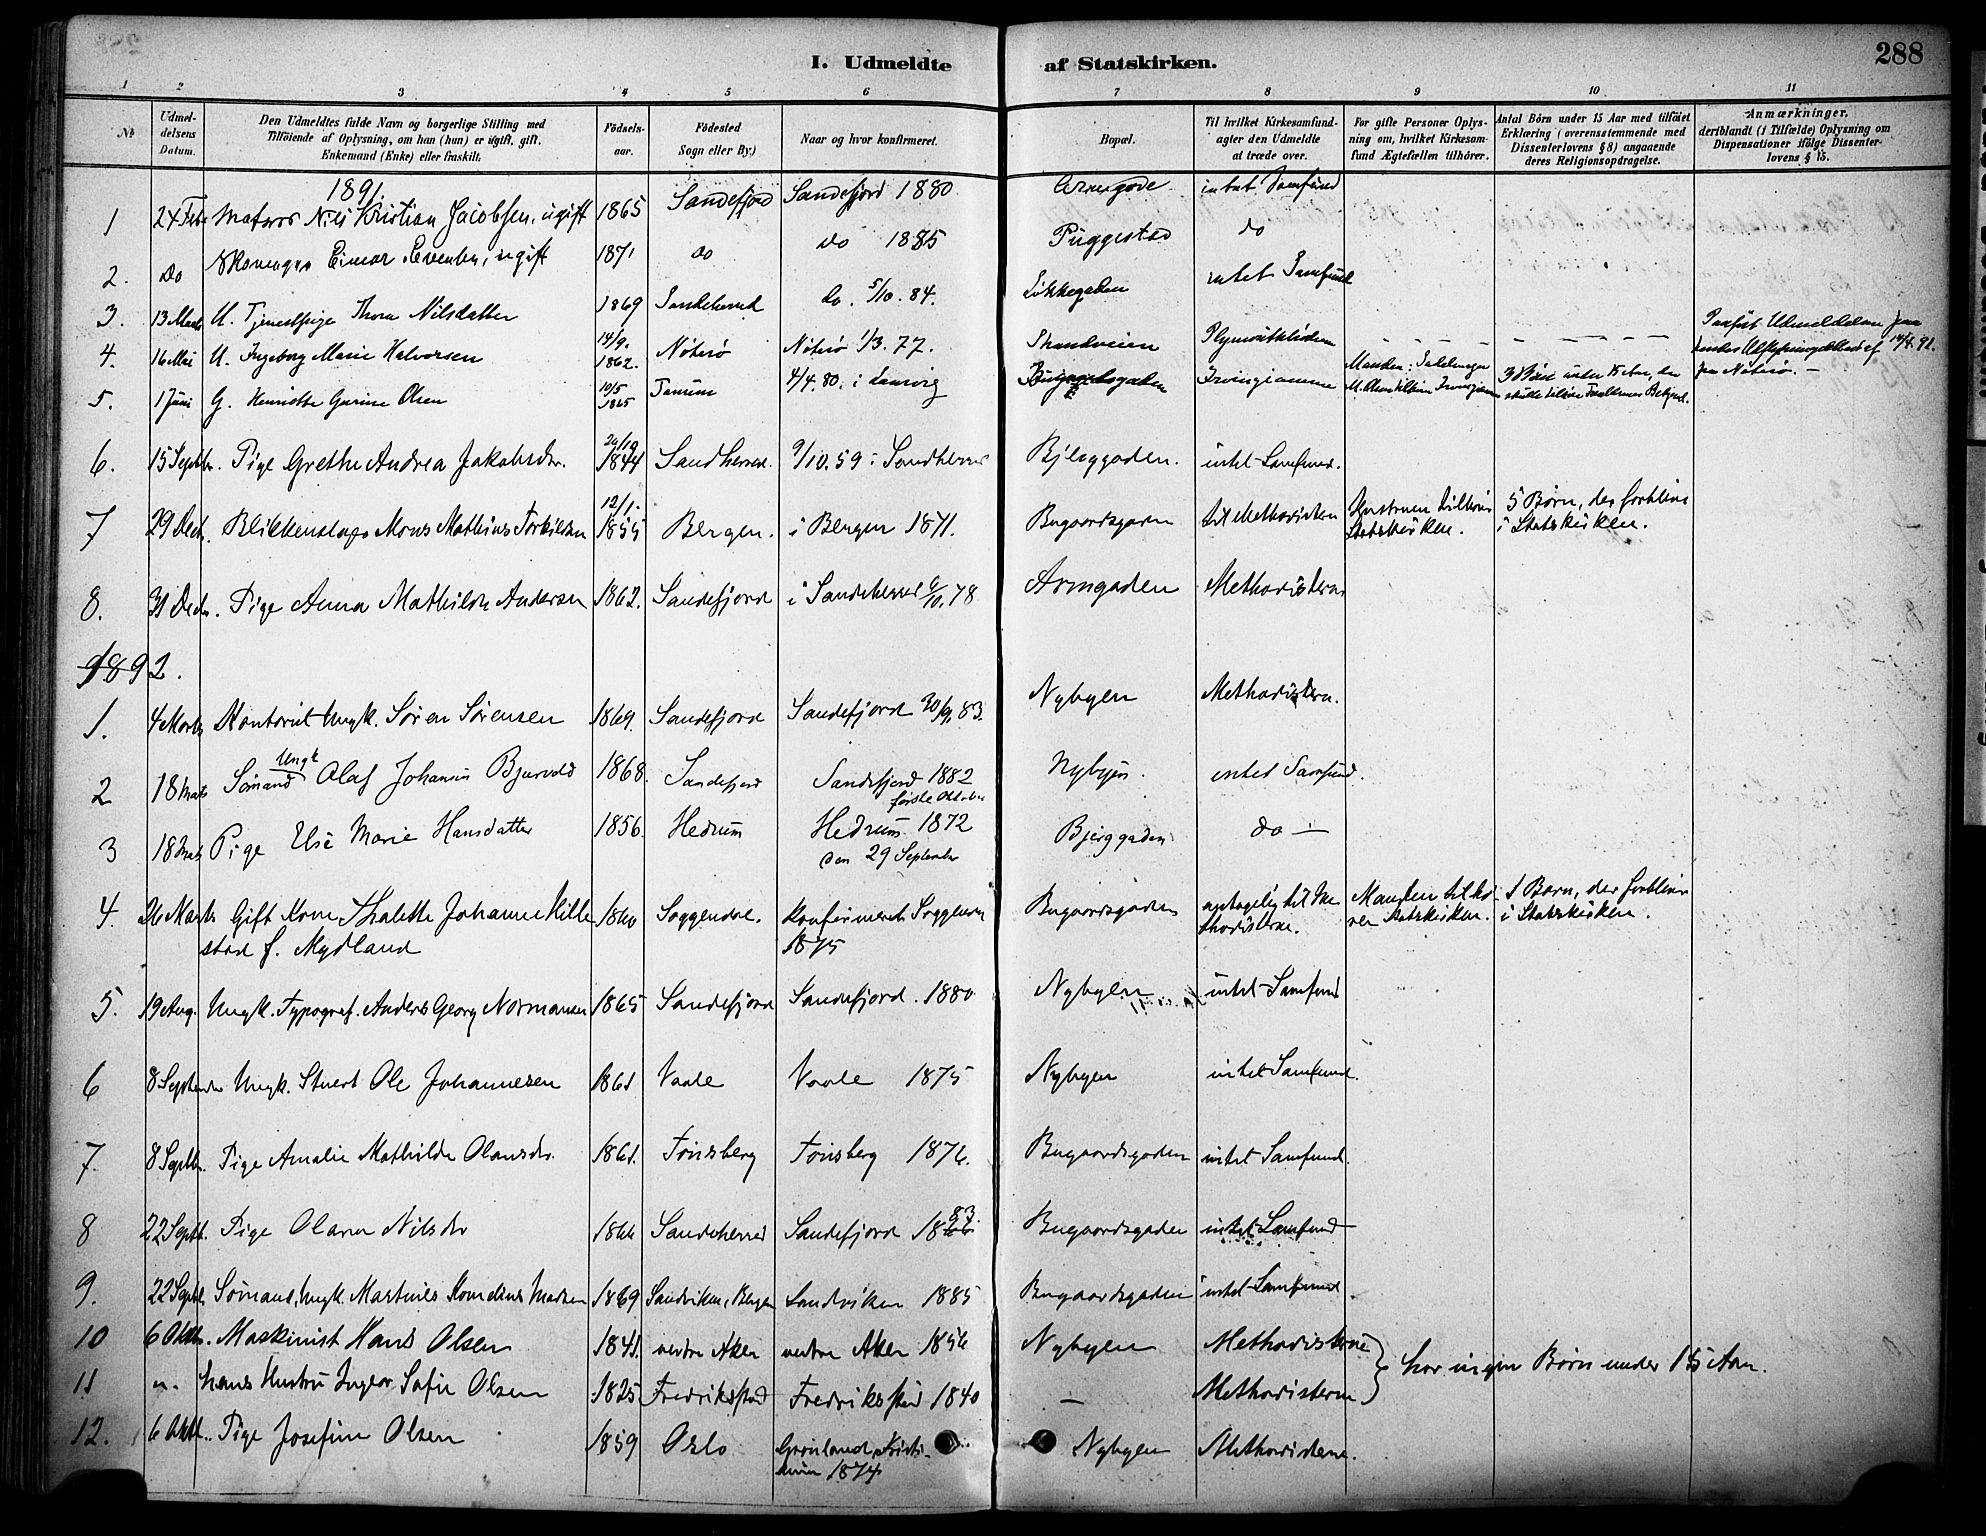 288
I. Udmeldte af Statskirken.
1 2 3 4 5 6 7 8 9 10 11
No
Udmeldelsens Datum.
Den Udmeldtes fulde Navn og borgerlige Stilling med
Tilføiende af Oplysning, om han (hun) er ugift, gift,
Enkemand (Enke) eller fraskilt.
Fødselsaar.
Fødested
Sogn eller By.)
Naar og hvor konfirmeret.
Bopæl.
Til hvilket Kirkesamfund
agter den Udmeldte
at træde over.
For gifte Personer Oplysning om, hvilket Kirkesamfund Ægtefællen tilhører.
Antal Børn under 15 Aar med tilføiet
Erklæring (overensstemmende med
Dissenterlovens § 8) angaaende
deres Religionsopdragelse.
Anmærkninger,
deriblandt (i Tilfælde) Oplysning om
Dispensationer ifølge Dissenterlovens § 15.
1891.
1 24 Feb Matros Nils Kristian Jacobsen, ugift 1865 Sandefjord Sandefjord 1880 intet Samfund
2. Do Einar Evensen, ugift 1871 do do 1885 Puggestad do
3. 13 Marts U. Tjenestpige Thora Nilsdatter 1869 Sandeherred do. 5/10. 84. Løkkegaden intet Samfund
4. 16 Mai U. Ingeborg Marie Halvorsen 14/9. 1862. Nøterø Nøterø 1/3. 77. Strandveien
5. 1 Juni G. Henriette Gurine Olsen 10/5 1865 Tanum 4/4 80. i Laurvig Bugaardsgaden Irvingianerne
6. 15 Septbr. Pige Grethe Andrea Jakobsdr. 29/10 1844 Sandherred. 9/10. 59 i Sandherred Bjerggaden. intet Samfund.
7 29 Decb. Blikkenslager Mons Mathias Torkildsen 12/1. 1855 Bergen. i Bergen 1871. Bugaardsgaden til Methodisterne Hustruen tilhører Statskirken. 5 Børn, der forbliver i Statskirken.
8. 31 Decb. Pige Anna Mathilde Andersen 1862. Sandefjord i Sandeherred 6/10. 78 Armgaden Methodisterne
1892.
1. 4 Marts Kontorist Ungk. Søren Sørensen 1869. Sandefjord Sandefjord 30/9. 83. Nybyen Methodisterne.
2 18 Mai Sømand Ungk Olaf Johannes Bjerveld 1868. Sandefjord Sandefjord 1882 første Oktober Nybyen. intet Samfund.
3 18 Mai Pige Else Marie Hansdatter 1856. Hedrum Hedrum 1872 den 29 September Bjerggaden do —
4. 26 Marts Gift Kone Thalette Johanne Hille- 1860 Soggendal. konfirmeret Soggendal Bugaardsgaden antagelig til Me- Manden tilhø- 1 Barn, der forbliver
stad f. Mydland 1875 thodisterne. rer Statskirken. i Statskirken.
5. 19 Aug. Ungk. Typograf. Anders Georg Normansen 1865 Sandefjord Sandefjord. 1880 Nybyen intet Samfund
6 8 September Ungk. Stuert Ole Johannesen 1861 Vaale Vaale 1875 Nybyen intet Samfund.
7. 8 Septbr. Pige Amalie Mathilde Olausdr. 1861. Tønsberg Tønsberg 1876. Bugaardsgaden intet Samfund.
8 22 Septb. Pige Olava Nilsdr 1866 Sandeherred Sandefjord 1883 Bugaardsgaden intet Samfund
9. 22 Septb. Sømand, Ungk. Martinius Madsen 1869 Sandviken, Bergen Sandviken 1885 Bugaardsgaden intet Samfund
10 6 Oktb. Maskinist Hans Olsen 1841. vestre Aker vestre Aker 1856 Nybyen Methodisterne
} har ingen Børn under 15 Aar.
11 „. hans Hustru Inger Sofie Olsen 1825 Fredrikstad Fredrikstad 1840 — Methodisterne
12. 6 Oktb. Pige Josefine Olsen 1859 Oslo Grønland, Kristiania 1874 Nybyen Methodisterne.